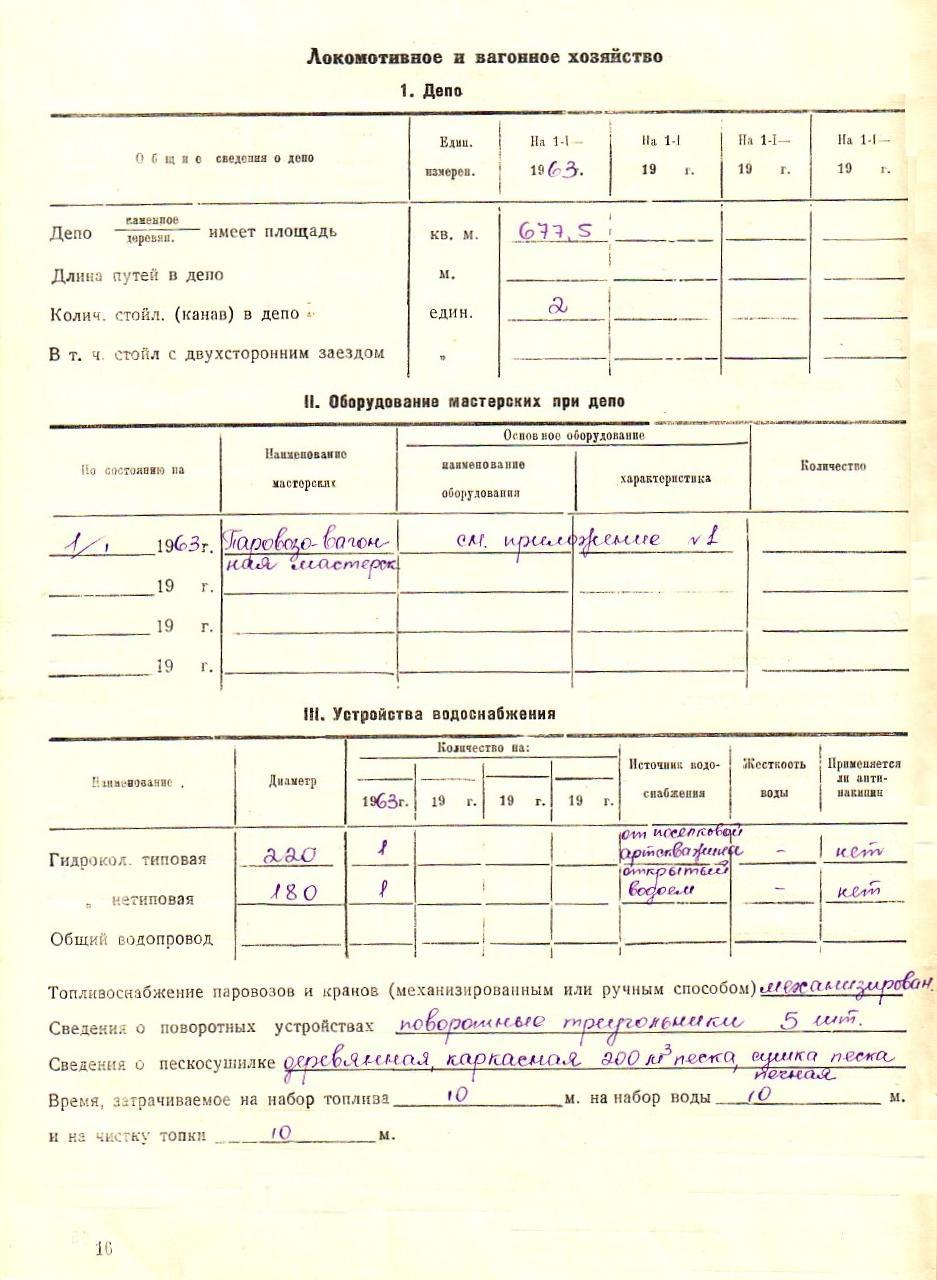 Локомотивное и вагонное хозяйство
1. Депо
Общие сведения о депо
Един. измерен.
На 1-I— 1963.
На 1-I 19 г.
На 1-I— 19 г.
На 1-I— 19 г.
Депо каменное / деревян. имеет площадь кв. м. 677,5
Длина путей в депо м.
Колич. стойл. (канав) в депо един. 2
В т. ч. стойл с двухсторонним заездом „
II. Оборудование мастерских при депо
По состоянию на
Наименование мастерских
Основное оборудование
наименование оборудования
характеристика
Количество
1/I 1963г. Паровозо-вагон- см. приложение №1
ная мастерск
19 г.
19 г.
19 г.
III. Устройства водоснабжения
Наименование
Диаметр
Количество на:
1963г. 19 г. 19 г. 19 г.
Источник водо-снабжения
Жесткость воды
Применяется ли анти-накипин
Гидрокол. типовая 220 1 от поселковой артскважины - нет
„ нетиповая 180 1 открытый водоем - нет
Общий водопровод
Топливоснабжение паровозов и кранов (механизированным или ручным способом) механизирован.
Сведения о поворотных устройствах поворотные треугольники 5 шт.
Сведения о пескосушилке деревянная, каркасная 200 м³ песка, сушка песка
печная
Время, затрачиваемое на набор топлива 10 м. на набор воды 10 м.
и на чистку топки 10 м.
16